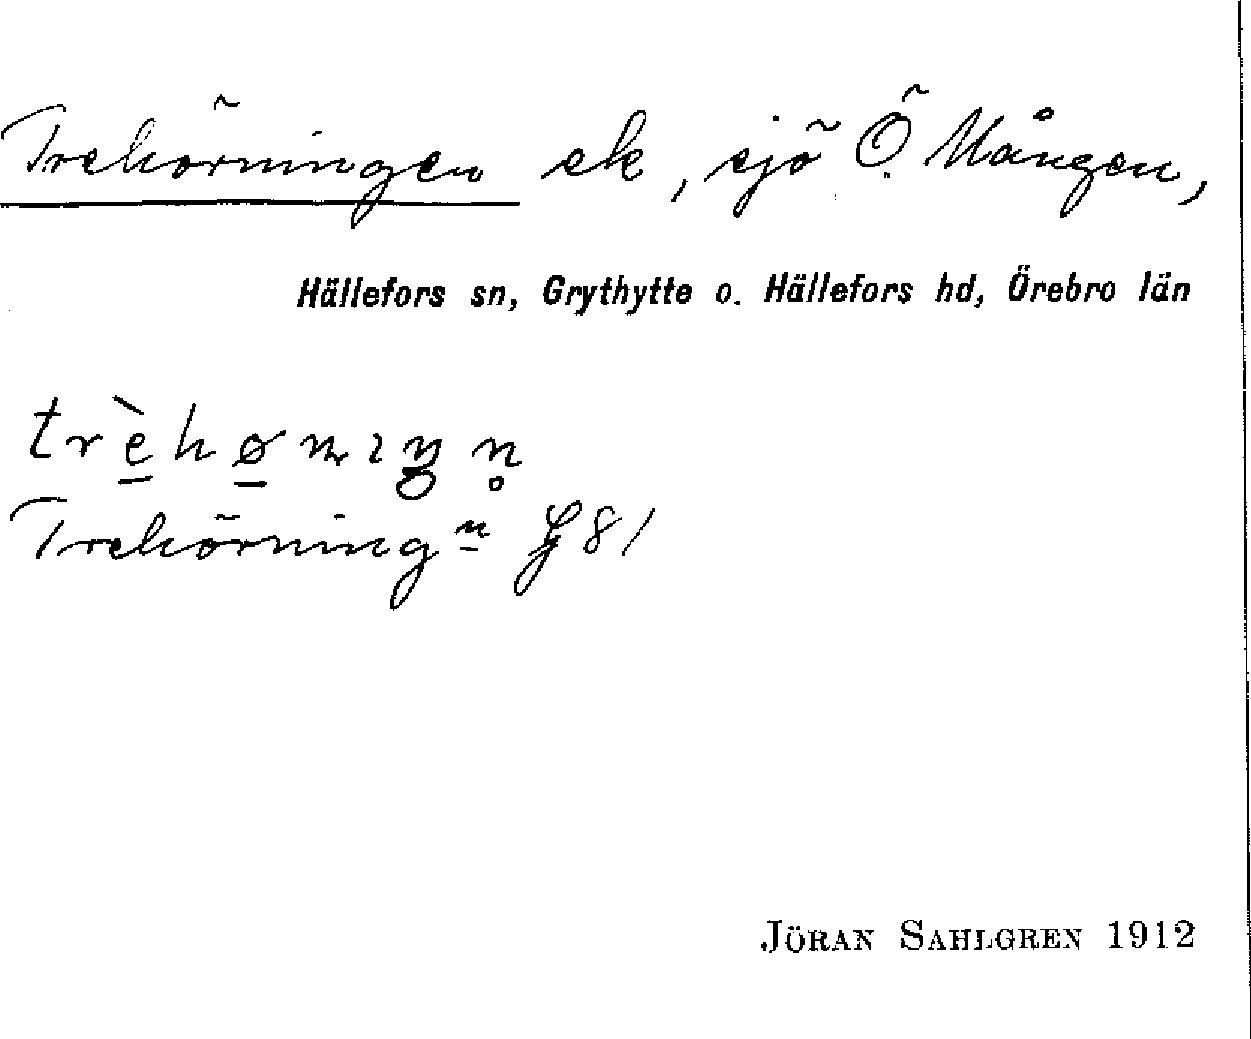 Trehörningen ek, sjö Ö. Mången,
Hällefors sn, Grythytte o. Hällefors hd, Örebro län
trèhø̠nɩŋn̥
Trehörningn 81
JÖRAN SAHLGREN 1912